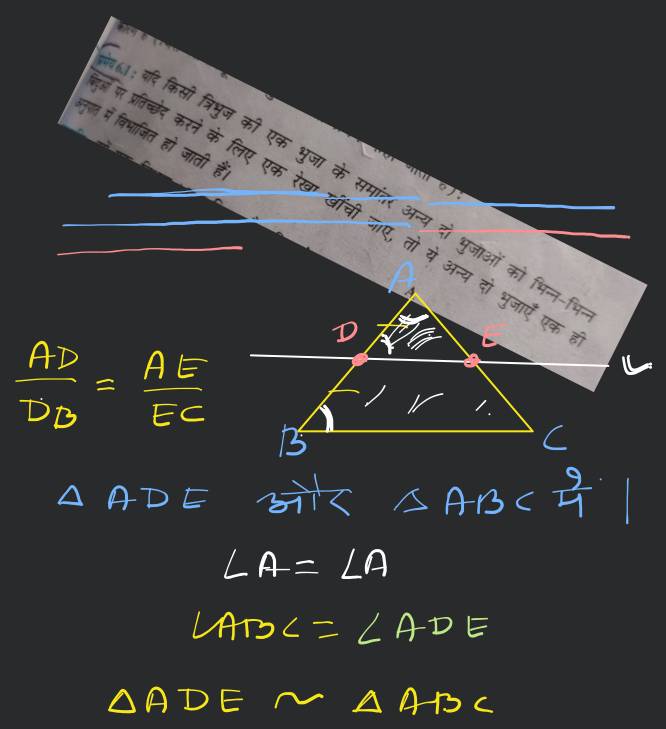 प्रमेय 6.1 : यदि किसी त्रिभुज की एक भुजा के समांतर अन्य दो भुजाओं को भिन्न-भिन्न
बिंदुओं पर प्रतिच्छेद करने के लिए एक रेखा खींची जाए, तो ये अन्य दो भुजाएँ एक ही
अनुपात में विभाजित हो जाती हैं।
A
D E
B C
AD/DB = AE/EC
△ ADE और △ ABC में |
∠A = ∠A
∠ABC = ∠ADE
△ADE ~ △ABC